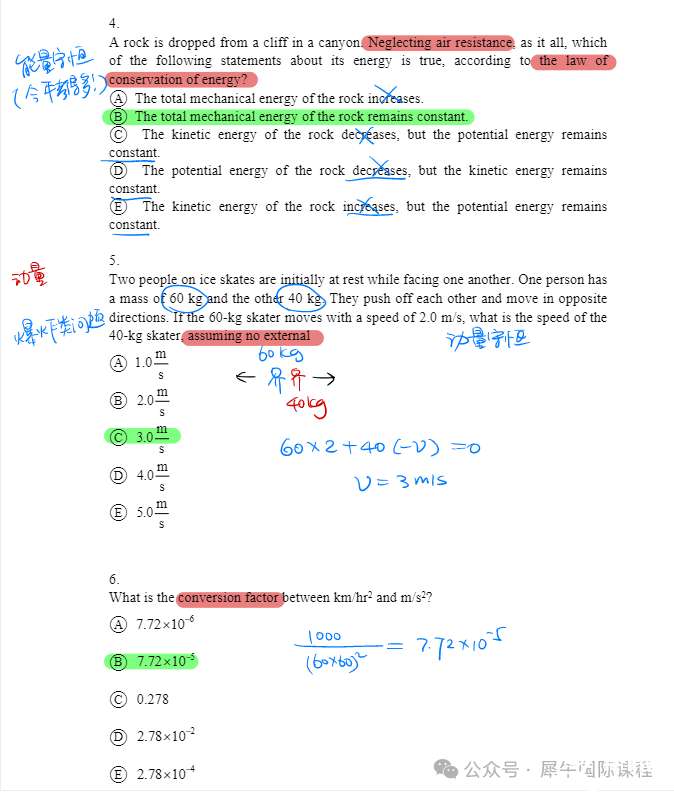 4.
A rock is dropped from a cliff in a canyon. Neglecting air resistance, as it all, which
能量守恒 of the following statements about its energy is true, according to the law of
conservation of energy?
Ⓐ The total mechanical energy of the rock increases.
Ⓑ The total mechanical energy of the rock remains constant.
Ⓒ The kinetic energy of the rock decreases, but the potential energy remains
constant.
Ⓓ The potential energy of the rock decreases, but the kinetic energy remains
constant.
Ⓔ The kinetic energy of the rock increases, but the potential energy remains
constant.
5.
动量
Two people on ice skates are initially at rest while facing one another. One person has
a mass of 60 kg and the other 40 kg. They push off each other and move in opposite
爆炸类问题 directions. If the 60-kg skater moves with a speed of 2.0 m/s, what is the speed of the
40-kg skater, assuming no external 动量守恒
60kg
Ⓐ 1.0 m/s
Ⓑ 2.0 m/s
40kg
Ⓒ 3.0 m/s
60×2+40(-v)=0
Ⓓ 4.0 m/s
v=3m/s
Ⓔ 5.0 m/s
6.
What is the conversion factor between km/hr² and m/s²?
Ⓐ 7.72×10⁻⁶
1000/(60×60)² = 7.72×10⁻⁵
Ⓑ 7.72×10⁻⁵
Ⓒ 0.278
Ⓓ 2.78×10⁻²
Ⓔ 2.78×10⁻⁴
公众号 · 犀牛国际课程